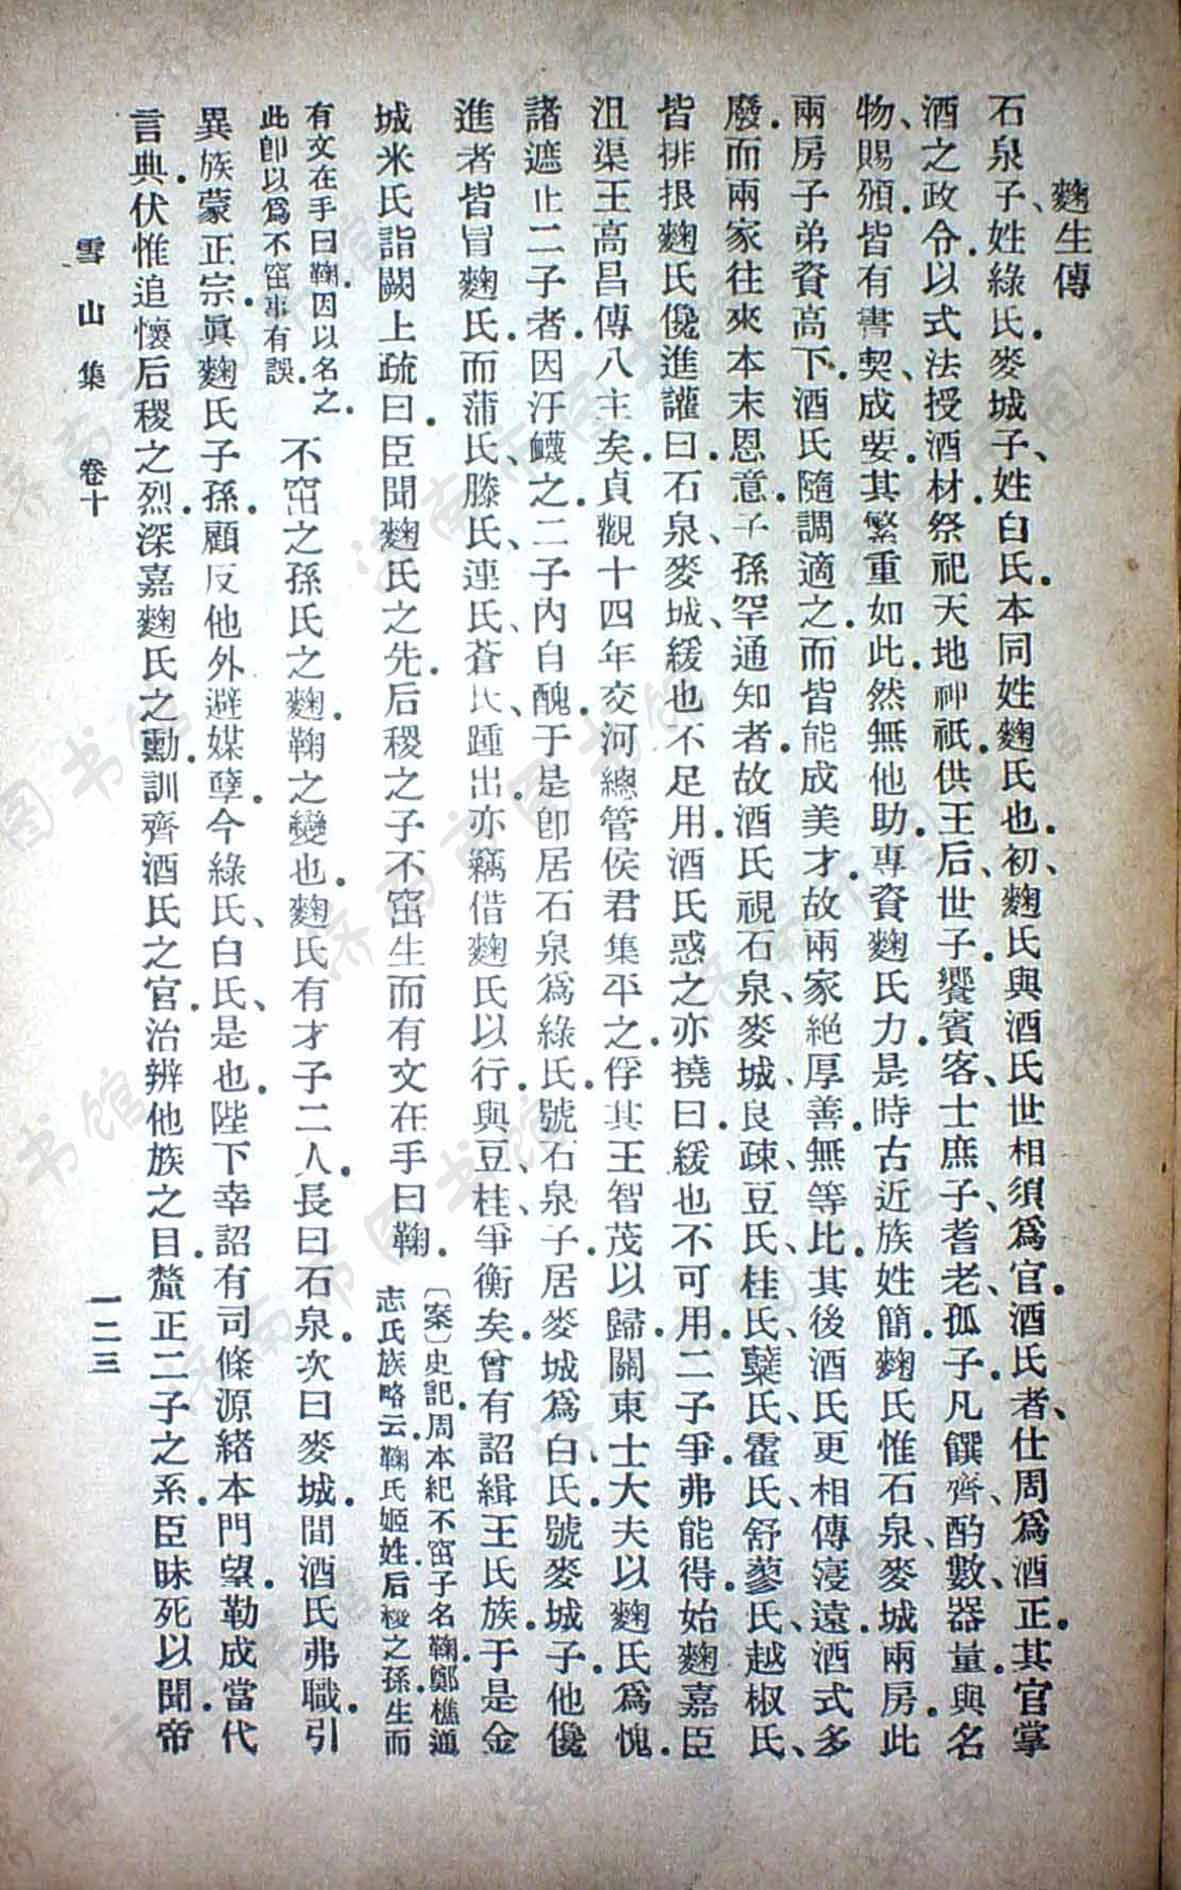 麴生傳
石泉子、姓綠氏。麥城子、姓白氏。本同姓麴氏也。初、麴氏與酒氏世相須爲官。酒氏者、仕周爲酒正。其官掌
酒之政令。以式法授酒材。祭祀天地神祇。供王后、世子。饗賓客、士庶子、耆老、孤子。凡饌齊、酌數、器量。與名
物、賜頒。皆有書契、成要。其繁重如此。然無他助。專資麴氏力。是時古近族姓簡。麴氏惟石泉、麥城兩房。此
兩房子弟資高下。酒氏隨調適之。而皆能成美才。故兩家絕厚善。無等比。其後酒氏更相傳寖遠。酒式多
廢。而兩家往來本末恩意。子孫罕通知者。故酒氏視石泉、麥城良疎。豆氏、桂氏、蘗氏、霍氏、舒蓼氏、越椒氏、
皆排拫麴氏儳進讙曰。石泉、麥城、緩也不足用。酒氏惑之。亦撓曰。緩也不可用。二子爭。弗能得。始麴嘉臣
沮渠王高昌。傳八主矣。貞觀十四年。交河總管侯君集平之。俘其王智茂以歸。關東士大夫以麴氏爲愧。
諸遮止二子者。因汙衊之。二子內自醜。于是卽居石泉爲綠氏。號石泉子。居麥城爲白氏。號麥城子。他儳
進者皆冒麴氏。而蒲氏、滕氏、連氏、蒼氏、踵出。亦竊借麴氏以行。與豆、桂爭衡矣。會有詔緝王氏族。于是金
城米氏詣闕上疏曰。臣聞麴氏之先。后稷之子不窋生而有文在手曰鞠。〔案〕史記。周本紀不窋子名鞠。鄭樵通
志氏族略云。鞠氏姬姓。后稷之孫。生而
有文在手曰鞠。因以名之。
此卽以爲不窋事有誤。不窋之孫氏之麴。鞠之變也。麴氏有才子二人。長曰石泉。次曰麥城。間酒氏弗職。引
異族蒙正宗。眞麴氏子孫。顧反他外避媒孽。今綠氏、白氏、是也。陛下幸詔有司條源緒本門望。勒成當代
言典。伏惟追懷后稷之烈。深嘉麴氏之勳。訓齊酒氏之官。治辨他族之目。釐正二子之系。臣昧死以聞。帝
雪山集 卷十 一二三